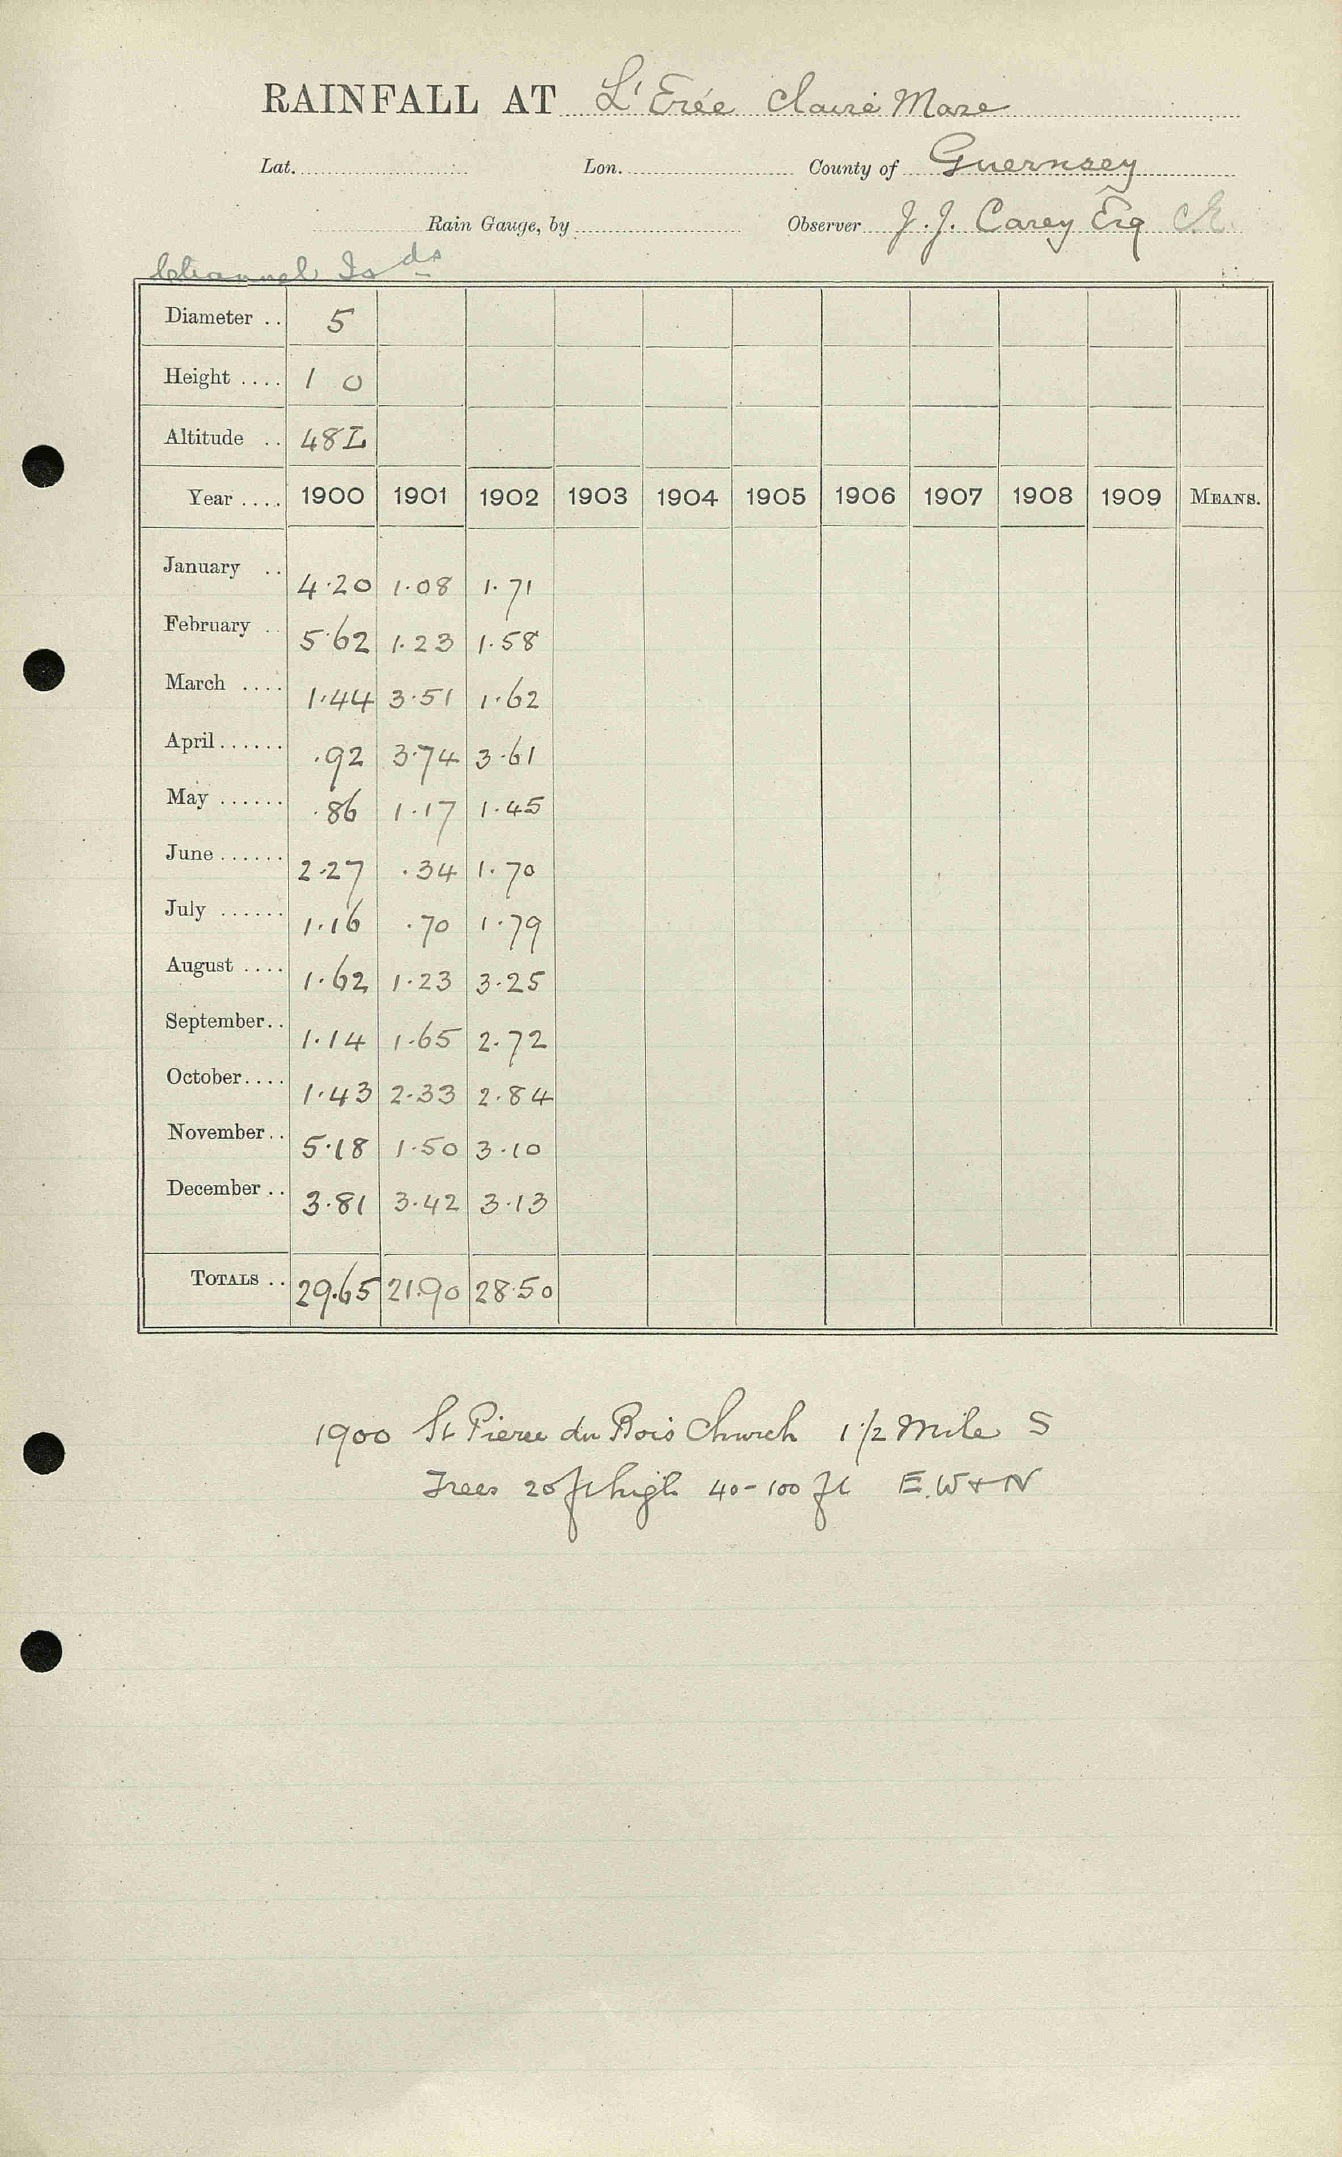 RAINFALL AT L'Erée Claire Mare
Lat. Lon. County of Guernsey
Rain Gauge, by Observer J. J. Carey Esq
Channel Isds
Diameter .. 5
Height .... 1 0
Altitude .. 48 L
Year .... 1900 1901 1902 1903 1904 1905 1906 1907 1908 1909 MEANS.
January .. 4.20 1.08 1.71
February .. 5.62 1.23 1.58
March .... 1.44 3.51 1.62
April ...... .92 3.74 3.61
May ...... .86 1.17 1.45
June ...... 2.27 .34 1.70
July ...... 1.16 .70 1.79
August .... 1.62 1.23 3.25
September.. 1.14 1.65 2.72
October.... 1.43 2.33 2.84
November.. 5.18 1.50 3.10
December .. 3.81 3.42 3.13
TOTALS .. 29.65 21.90 28.50
1900 St Pierre du Bois Church 1 1/2 Mile S
Trees 20 ft high 40-100 ft E. W + N